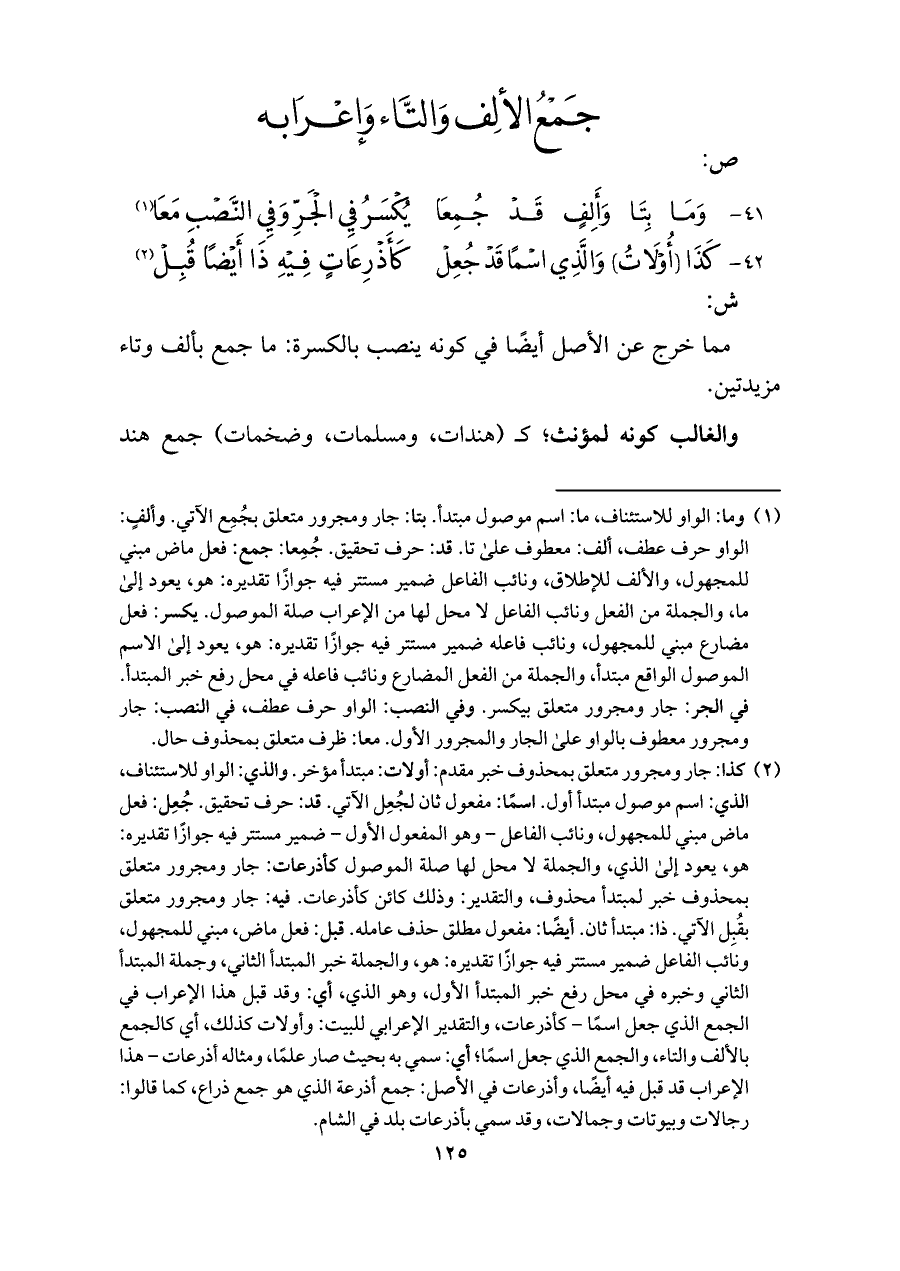 جَمْعُ الألِف وَالتَّاء وَإعْرَابه
ص:
٤١- وَمَا بِتَا وَأَلِفٍ قَدْ جُمِعَا يُكْسَرُ فِي الْجَرِّ وَفِي النَّصْبِ مَعَا(١)
٤٢- كَذَا (أُوْلَاتُ) وَالَّذِي اسْمًا قَدْ جُعِلْ كَأَذْرِعَاتٍ فِيْهِ ذَا أَيْضًا قُبِلْ(٢)
ش:
مما خرج عن الأصل أيضًا في كونه ينصب بالكسرة: ما جمع بألف وتاء
مزيدتين.
والغالب كونه لمؤنث؛ كـ (هندات، ومسلمات، وضخمات) جمع هند
(١) وما: الواو للاستئناف، ما: اسم موصول مبتدأ. بتا: جار ومجرور متعلق بجُمِع الآتي. وألفٍ:
الواو حرف عطف، ألف: معطوف علىٰ تا. قد: حرف تحقيق. جُمِعا: جمع: فعل ماض مبني
للمجهول، والألف للإطلاق، ونائب الفاعل ضمير مستتر فيه جوازًا تقديره: هو، يعود إلىٰ
ما، والجملة من الفعل ونائب الفاعل لا محل لها من الإعراب صلة الموصول. يكسر: فعل
مضارع مبني للمجهول، ونائب فاعله ضمير مستتر فيه جوازًا تقديره: هو، يعود إلىٰ الاسم
الموصول الواقع مبتدأ، والجملة من الفعل المضارع ونائب فاعله في محل رفع خبر المبتدأ.
في الجر: جار ومجرور متعلق بيكسر. وفي النصب: الواو حرف عطف، في النصب: جار
ومجرور معطوف بالواو علىٰ الجار والمجرور الأول. معا: ظرف متعلق بمحذوف حال.
(٢) كذا: جار ومجرور متعلق بمحذوف خبر مقدم: أولات: مبتدأ مؤخر. والذي: الواو للاستئناف،
الذي: اسم موصول مبتدأ أول. اسمًا: مفعول ثان لجُعِل الآتي. قد: حرف تحقيق. جُعِل: فعل
ماض مبني للمجهول، ونائب الفاعل – وهو المفعول الأول – ضمير مستتر فيه جوازًا تقديره:
هو، يعود إلىٰ الذي، والجملة لا محل لها صلة الموصول كأذرعات: جار ومجرور متعلق
بمحذوف خبر لمبتدأ محذوف، والتقدير: وذلك كائن كأذرعات. فيه: جار ومجرور متعلق
بقُبِل الآتي. ذا: مبتدأ ثان. أيضًا: مفعول مطلق حذف عامله. قبل: فعل ماض، مبني للمجهول،
ونائب الفاعل ضمير مستتر فيه جوازًا تقديره: هو، والجملة خبر المبتدأ الثاني، وجملة المبتدأ
الثاني وخبره في محل رفع خبر المبتدأ الأول، وهو الذي، أي: وقد قبل هذا الإعراب في
الجمع الذي جعل اسمًا – كأذرعات، والتقدير الإعرابي للبيت: وأولات كذلك، أي كالجمع
بالألف والتاء، والجمع الذي جعل اسمًا؛ أي: سمي به بحيث صار علمًا، ومثاله أذرعات – هذا
الإعراب قد قبل فيه أيضًا، وأذرعات في الأصل: جمع أذرعة الذي هو جمع ذراع، كما قالوا:
رجالات وبيوتات وجمالات، وقد سمي بأذرعات بلد في الشام.
١٢٥